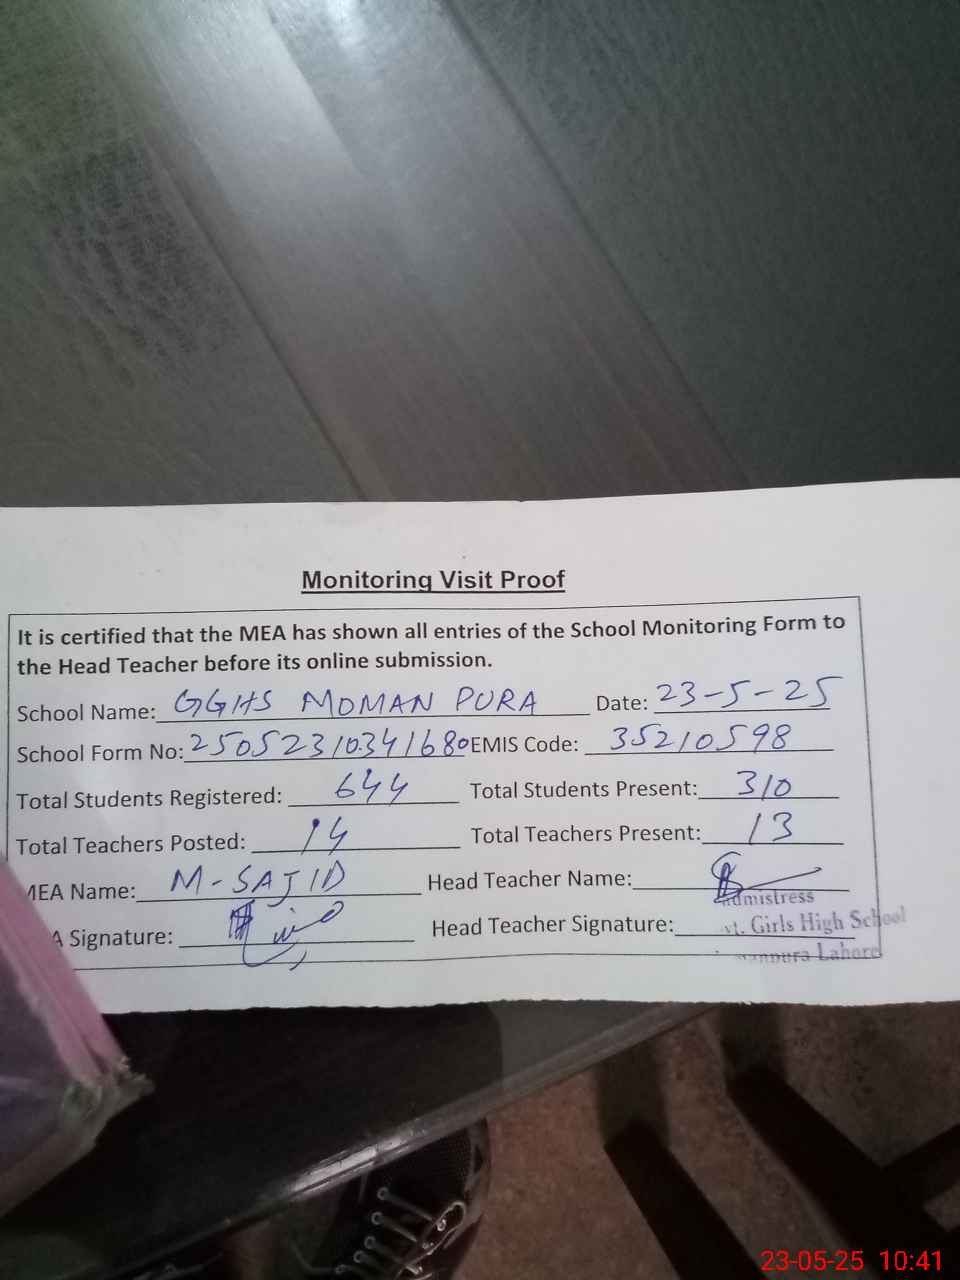 Monitoring Visit Proof
It is certified that the MEA has shown all entries of the School Monitoring Form to
the Head Teacher before its online submission.
School Name: GGHS MOMAN PURA Date: 23-5-25
School Form No: 250523103341680 EMIS Code: 35210598
Total Students Registered: 644 Total Students Present: 310
Total Teachers Posted: 14 Total Teachers Present: 13
MEA Name: M-SAJID Head Teacher Name:
A Signature: Head Teacher Signature:
admistress
vt. Girls High School
anpura Lahore
23-05-25 10:41